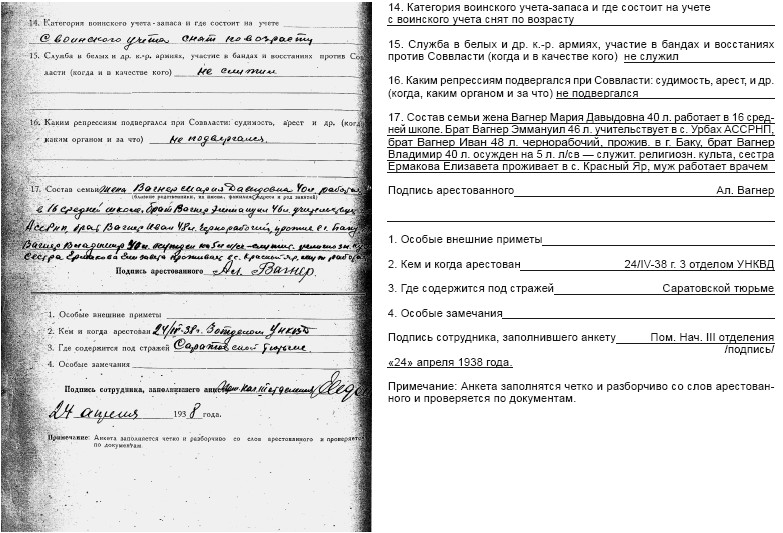 14. Категория воинского учета-запаса и где состоит на учете
С воинского учета снят по возрасту
15. Служба в белых и др. к.-р. армиях, участие в бандах и восстаниях против Сов
ласти (когда и в качестве кого) не служил
16. Каким репрессиям подвергался при Соввласти: судимость, арест и др. (когда
каким органом и за что) не подвергался
17. Состав семьи жена Вагнер Мария Давидовна 40 л. работа
(близкие родственники, их имена, фамилии, адреса и род занятий)
в 16 средней школе, брат Вагнер Эммануил 46 л.
АССРНП, брат Вагнер Иван 48 л. чернорабочий, прожив. в г. Баку
Вагнер Владимир 40 л. осужден на 5 л.
сестра Ермакова Елизавета проживает в с. Красный Яр, муж работа
Подпись арестованного Ал. Вагнер.
1. Особые внешние приметы
2. Кем и когда арестован 24/IV-38 г. 3 отделом УНКВД
3. Где содержится под стражей Саратовской тюрьме
4. Особые замечания
Подпись сотрудника, заполнившего анкету
24 апреля 1938 года.
Примечание: Анкета заполняется четко и разборчиво со слов арестованного и проверяется
по документам
14. Категория воинского учета-запаса и где состоит на учете
с воинского учета снят по возрасту
15. Служба в белых и др. к.-р. армиях, участие в бандах и восстаниях
против Соввласти (когда и в качестве кого) не служил
16. Каким репрессиям подвергался при Соввласти: судимость, арест, и др.
(когда, каким органом и за что) не подвергался
17. Состав семьи жена Вагнер Мария Давыдовна 40 л. работает в 16 сред-
ней школе. Брат Вагнер Эммануил 46 л. учительствует в с. Урбах АССРНП,
брат Вагнер Иван 48 л. чернорабочий, прожив. в г. Баку, брат Вагнер
Владимир 40 л. осужден на 5 л. л/св — служит. религиозн. культа, сестра
Ермакова Елизавета проживает в с. Красный Яр, муж работает врачем
Подпись арестованного Ал. Вагнер
1. Особые внешние приметы
2. Кем и когда арестован 24/IV-38 г. 3 отделом УНКВД
3. Где содержится под стражей Саратовской тюрьме
4. Особые замечания
Подпись сотрудника, заполнившего анкету Пом. Нач. III отделения
/подпись/
«24» апреля 1938 года.
Примечание: Анкета заполнятся четко и разборчиво со слов арестован-
ного и проверяется по документам.